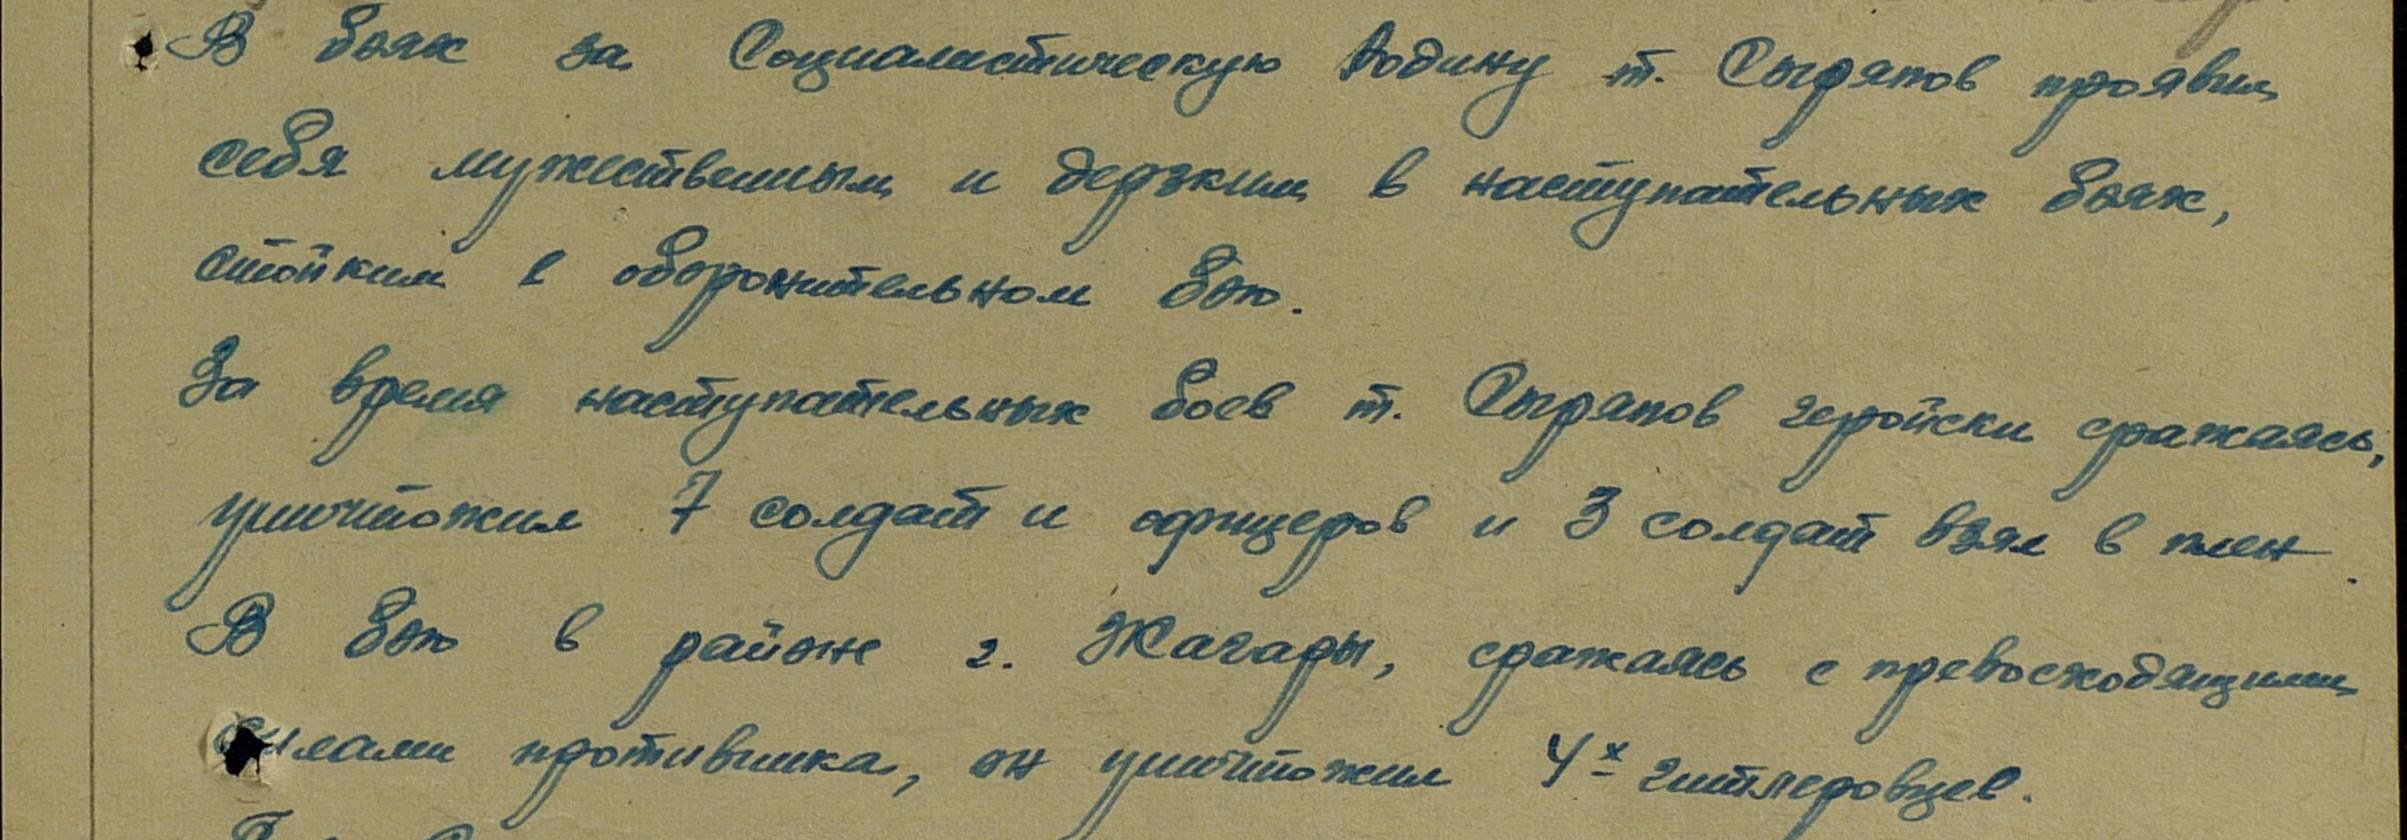 В боях за Социалистическую Родину т. Сыряпов проявил
себя мужественным и дерзким в наступательных боях,
стойким в оборонительном бою.
За время наступательных боев т. Сыряпов геройски сражаясь,
уничтожил 7 солдат и офицеров и 3 солдат взял в плен.
В бою в районе г. Жагары, сражаясь с превосходящими
силами противника, он уничтожил 4х гитлеровцев.